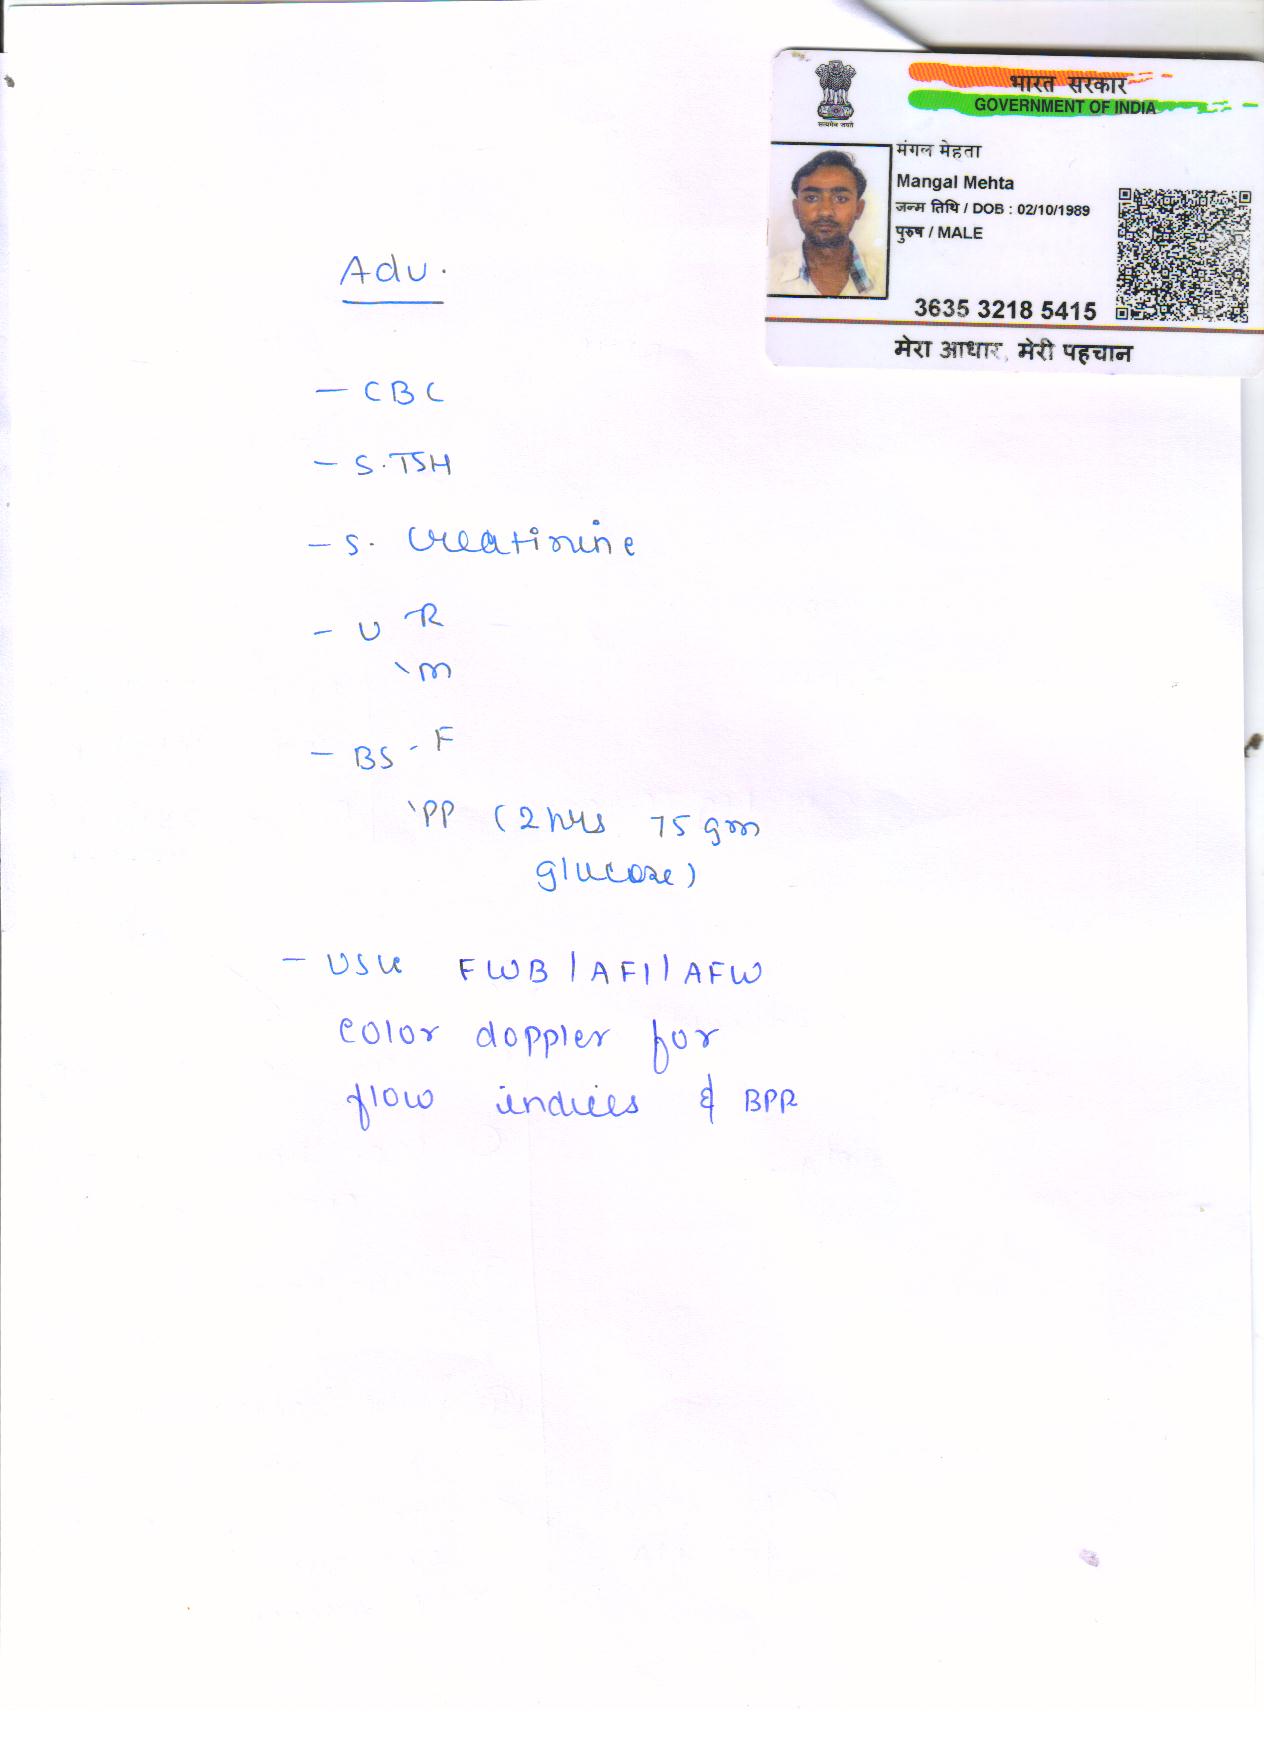 भारत सरकार
GOVERNMENT OF INDIA
सत्यमेव जयते
मंगल मेहता
Mangal Mehta
जन्म तिथि / DOB : 02/10/1989
पुरुष / MALE
3635 3218 5415
मेरा आधार, मेरी पहचान
Adv.
- CBC
- S.TSH
- S. Creatinine
- U R
M
- BS - F
PP (2 hrs 75 gm
glucose)
- USG FWB / AFI / AFW
Color doppler for
flow indices & BPR